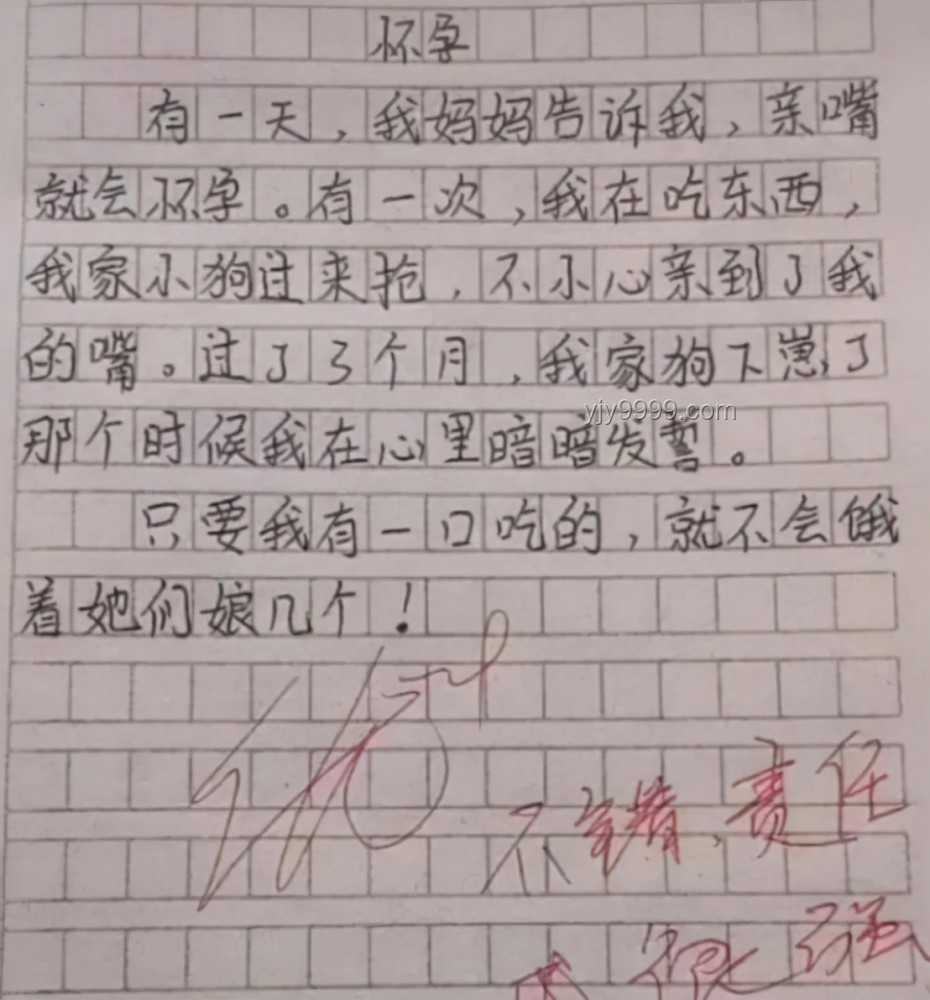 怀孕
有一天，我妈妈告诉我，亲嘴
就会怀孕。有一次，我在吃东西，
我家小狗过来抢，不小心亲到了我
的嘴。过了3个月，我家狗下崽了
yjy9999.com
那个时候我在心里暗暗发誓。
只要我有一口吃的，就不会饿
着她们娘几个！
不错，责任
很强